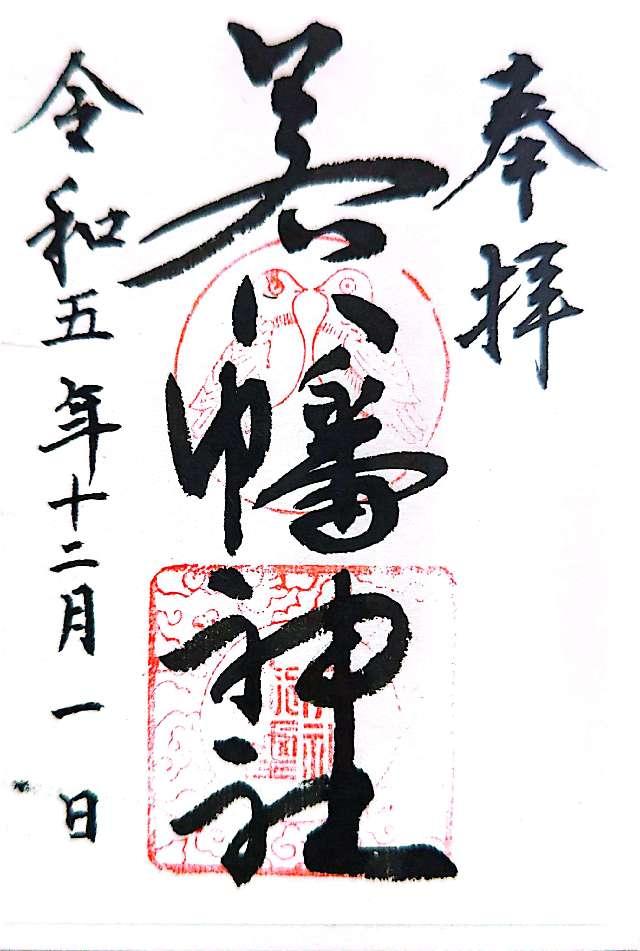 奉拝
若八幡神社
令和五年十二月一日